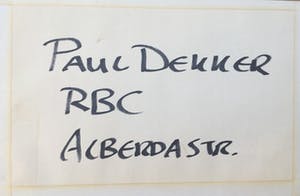 PAUL DEKKER
RBC
ALBERDASTR.